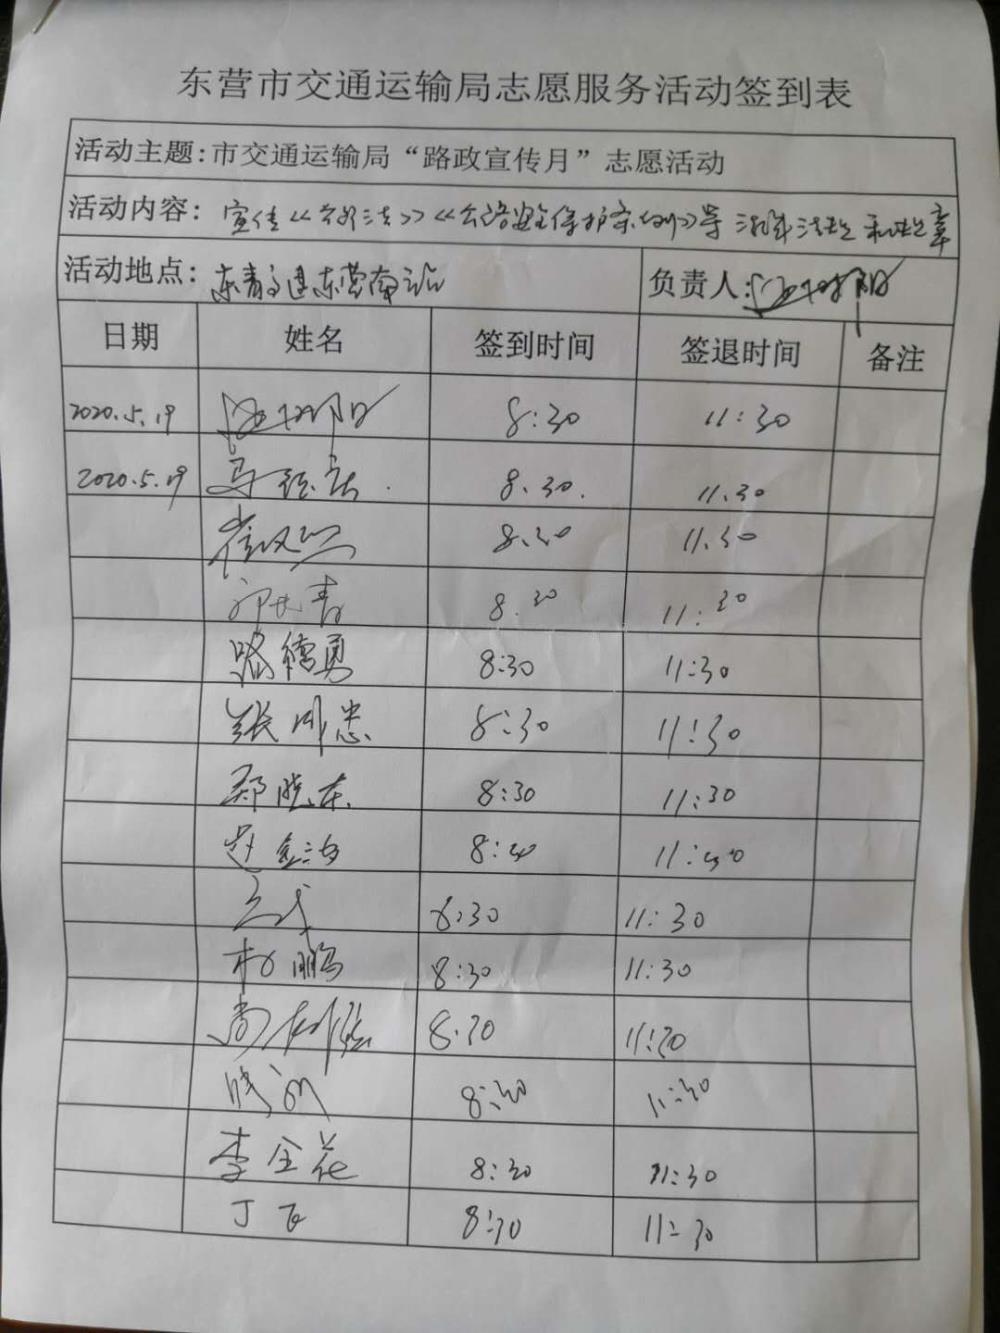 东营市交通运输局志愿服务活动签到表
活动主题:市交通运输局“路政宣传月”志愿活动
活动内容: 宣传《公路法》《公路安全保护条例》等 法律法规和规章
活动地点: 东青高速东营南站 负责人:
日期 姓名 签到时间 签退时间 备注
2020.5.19 8:30 11:30
2020.5.19 马 8.30. 11.30
崔 8.30 11.30
青 8.30 11:30
路德勇 8:30 11:30
张周忠 8:30 11:30
郑晓东 8:30 11:30
赵 8:30 11:30
8:30 11:30
杜鹏 8:30 11:30
尚 8.30 11:30
8:30 11:30
李全花 8:30 11:30
丁飞 8:30 11:30